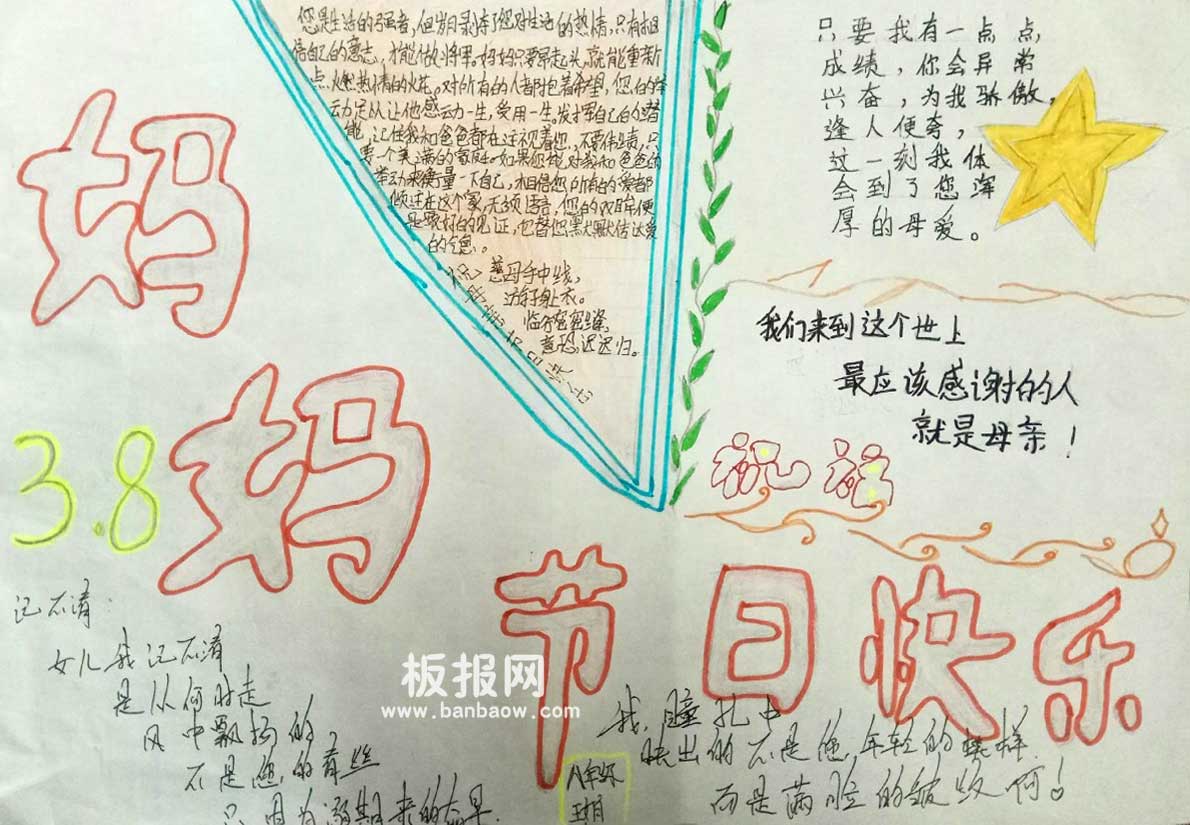 您是生活的强者，但岁月剥夺了您对生活的热情，只有相
信自己的意志，才能做将军。妈妈只要昂起头，就能重新
点燃热情的火花。对所有的人都抱着希望，您的举
动足以让他感动一生，受用一生。发挥自己的潜
能，记住我和爸爸都在注视着您，不要
要一个美满的家庭。如果您
举动来衡量一下自己，相信您所有的爱都
倾注在这个家，无须语言，您的双眼便
是最好的见证，也替您默默传达爱
的气息。
慈母手中线，
游子身上衣。
临行密密缝，
意恐迟迟归。
只要我有一点点
成绩，你会异常
兴奋，为我骄傲，
逢人便夸，
这一刻我体
会到了您浑
厚的母爱。
我们来到这个世上
最应该感谢的人
就是母亲！
祝福
妈
妈
3.8
节日快乐
记不清：
女儿我记不清
是从何时走
风中飘扬的
不是您的青丝
只因为
我，瞳孔中
映出的不是您，年轻的模样
而是满脸的皱纹啊！
八年级
板报网
www.banbaow.com